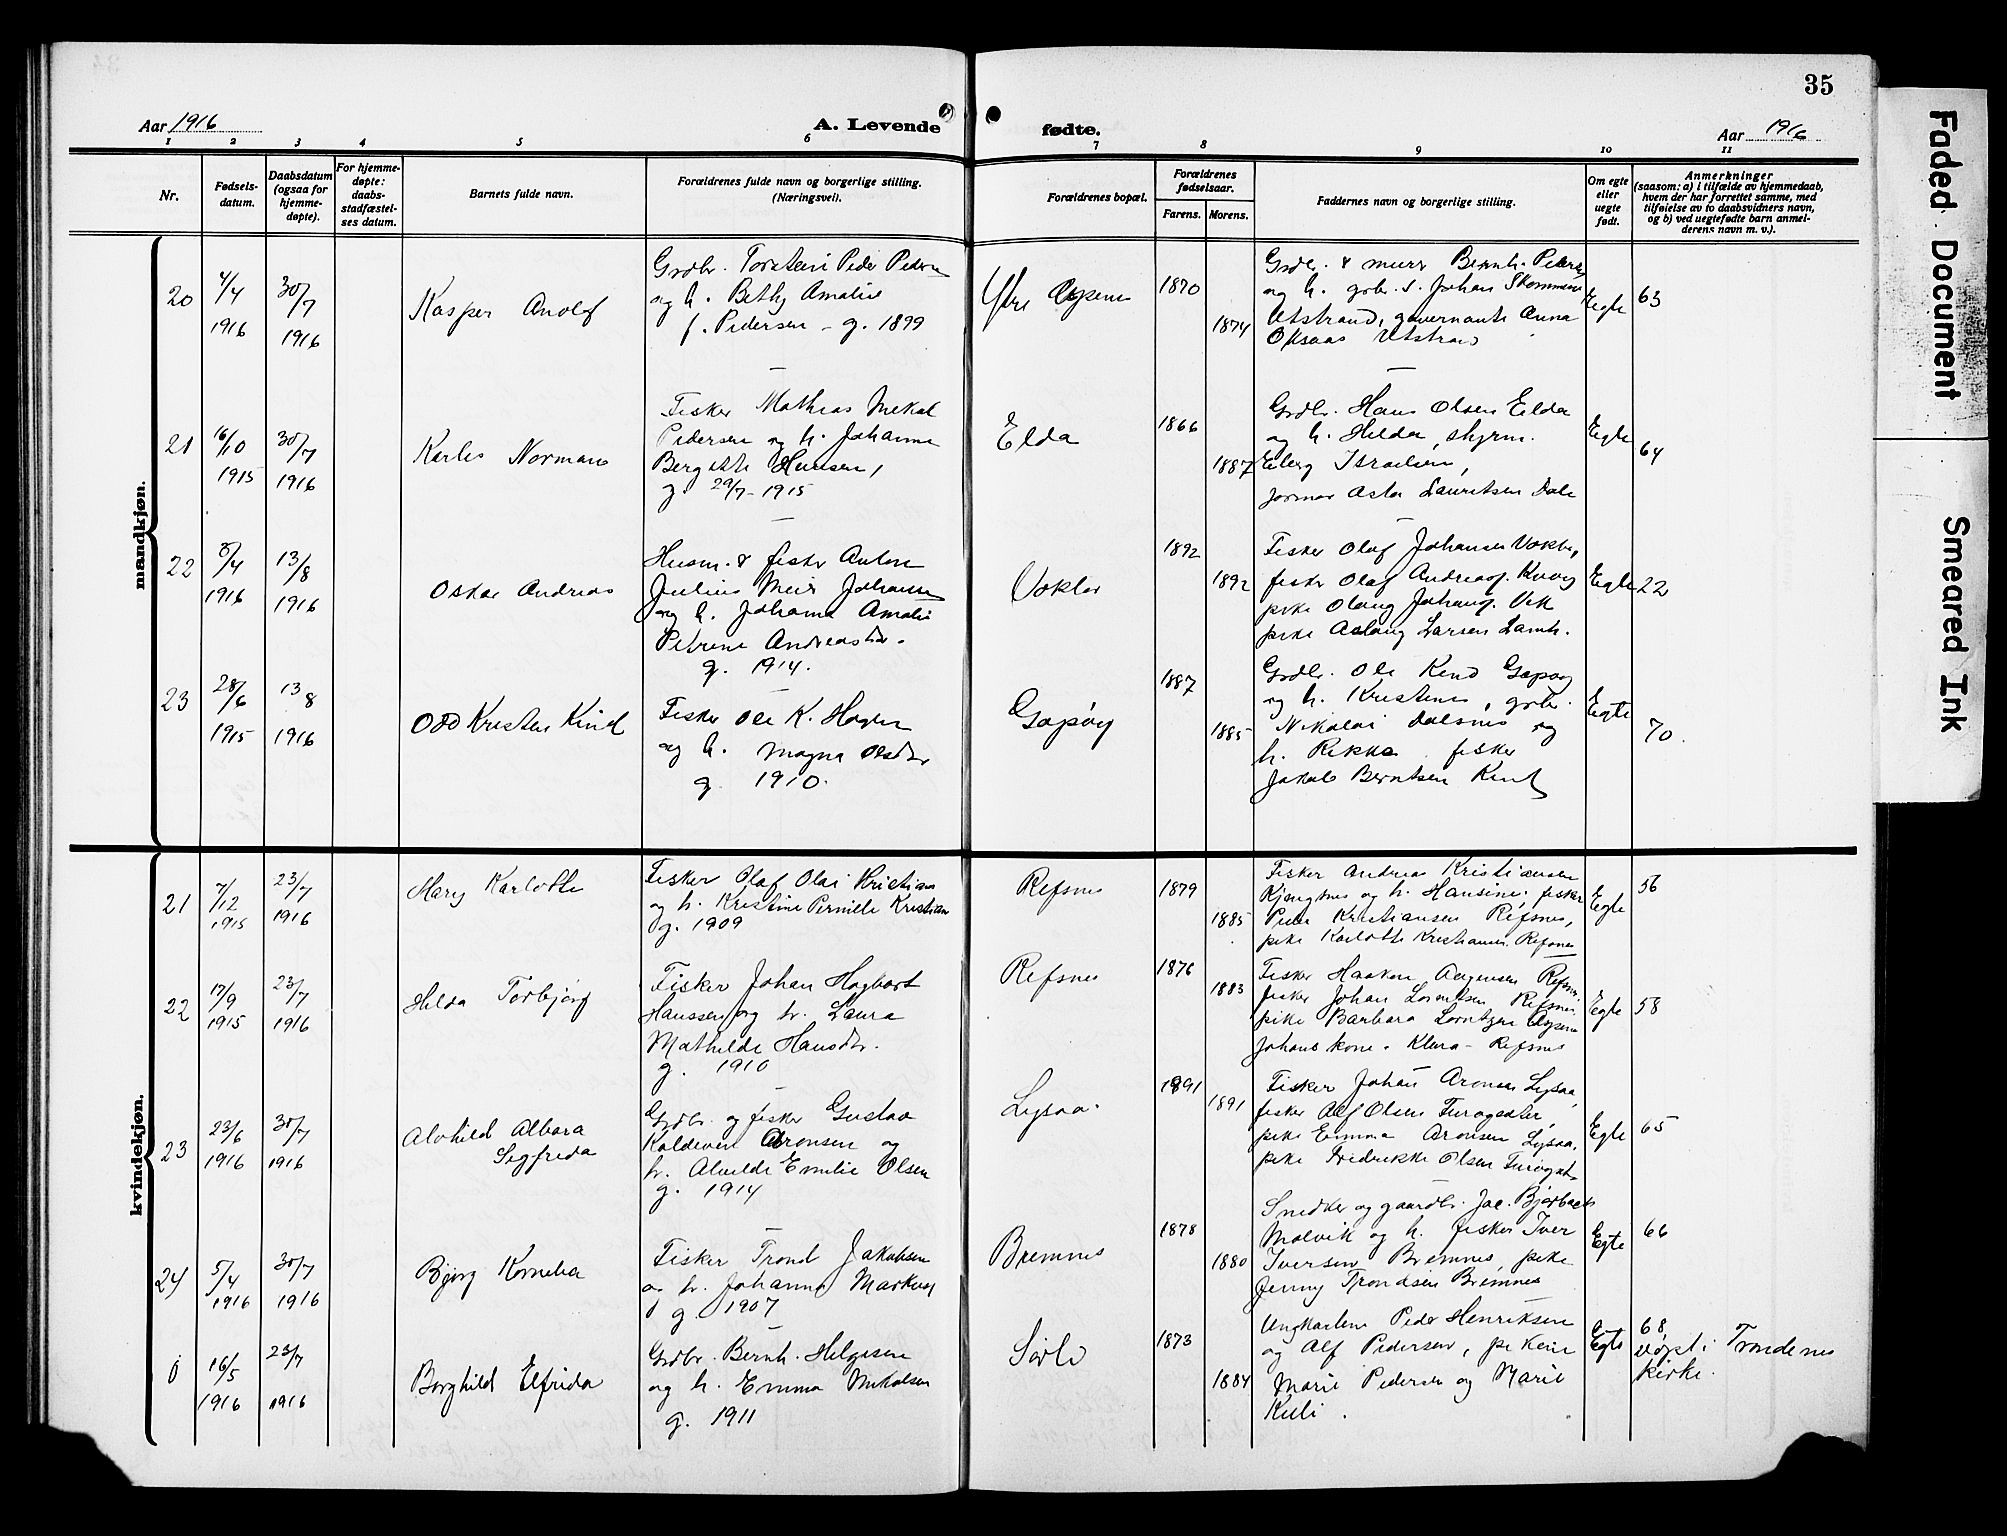 35
Aar 1916
A. Levende fødte.
Aar 1916
1 2 3 4 5 6 7 8 9 10 11
Nr.
Fødsels-
datum.
Daabsdatum
(ogsaa for
hjemme-
døpte).
For hjemme-
døpte:
daabs-
stadfæstel-
ses datum.
Barnets fulde navn.
Forældrenes fulde navn og borgerlige stilling.
(Næringsvei).
Forældrenes bopæl.
Forældrenes
fødselsaar.
Farens. Morens.
Faddernes navn og borgerlige stilling.
Om egte
eller
uegte
født.
Anmerkninger
(saasom: a) i tilfælde av hjemmedaab,
hvem der har forrettet samme, med
tilføielse av to daabsvidners navn,
og b) ved uegtefødte barn anmel-
derens navn m. v.).
mandkjøn.
20
4/4
1916
30/7
1916
Kasper Anolf
Grdbr. Torstein Peder Pedersen
og h. Bethy Amalie
f. Pedersen - g. 1899
1870
1874
Grdbr. & murer Bernh. Petersen
og h. grbr. s. Johan
Utstrand, guvernante Anna
Oksaas Utstrand
Egte
63
21
16/10
1915
30/7
1916
Karles Norman
Fisker Mathias Mekal
Pedersen og h. Johanna
Bergitte Hansen,
g. 29/7-1915
Elda
1866
1887
Grdbr. Hans Olsen Elda
og h. Helda, styrm.
Israelsen,
Asta Lauritsen Dale
Egte
64
22
5/4
1916
13/8
1916
Oskar Andreas
Husm. & fisker Anton
Julius Meir Johansen
og h. Johanna Amalie
Petrine Andreasdtr.
g. 1914.
1892
1892
Fisker Olaf Johansen
fisker Olaf Andreas.
pike Olaug Johans. Vik
pike Aslaug Larsen Lamh.
Egte
22
23
28/6
1915
13/8
1916
Odd Kristen Kind
Fisker Ole K. Hagen
og h. Magna Olsdtr
g. 1910.
Gapøy
1887
1885
Grdbr. Ole Kind Gapøy
og h. Kristine, grbr.
Nikolai Dalsnes og
h. Rikka fisker
Jakob Berntsen Kind
Egte
70.
kvindekjøn.
21
7/12
1915
23/7
1916
Mary Karlotte
Fisker Olaf Olai Kristian
og h. Kristine Pernille Kristian
g. 1909
Refsnes
1879
1885
Fisker Andrea Kristiansen
og h. Hansine, fisker
Peder Kristiansen Refsnes,
pike Karlotte Kristiansen Refsnes
Egte
56
22
17/9
1915
23/7
1916
Hilda Torbjørg
Fisker Johan Hagbart
Hanssen og h. Laura
Mathilde Hansdtr.
g. 1910
Refsnes
1876
1883
Fisker Haakon Aagensen Refsn.
fisker Johan Lorentsen Refsnes.
pike Barbara Lorntzen
Johans kone. Klara - Refsnes
Egte
58
23
23/6
1916
30/7
1916
Alvhild Albara
Segfreda
Grdbr. og fisker Gustav
Kaldeven Aronsen og
h. Alvilde Emilie Olsen
g. 1914
Lysaa.
1891
1891
Fisker Johan Aronsen Lysaa,
fisker Alf Olsen
pike Emma Aronsen Lysaa.
pike Fredrikke Olsen
Egte
65
24
5/4
1916
30/7
1916
Bjørg Kornelia
Fisker Trond Jakobsen
og h. Johanna Markus
g. 1907
Bremnes
1878
1880
Snedker og gaardbr. Jac. Bjørbæk
Molvik og h. fisker Iver
Iversen Bremnes, pike
Jenny Trondsen Bremnes
Egte
66
0
16/5
1916
23/7
1916
Borghild Elfrida
Grdbr. Bernh. Helgesen
og h. Emma Mikalsen
g. 1911
Sørli
1873
1884
Ungkarlene Peder Henriksen
og Alf Pedersen, pikerne
Marie Pedersen og Marie
Kuli.
Egte
68
døpt i Trondenes
kirke.
Faded Document
Smeared Ink